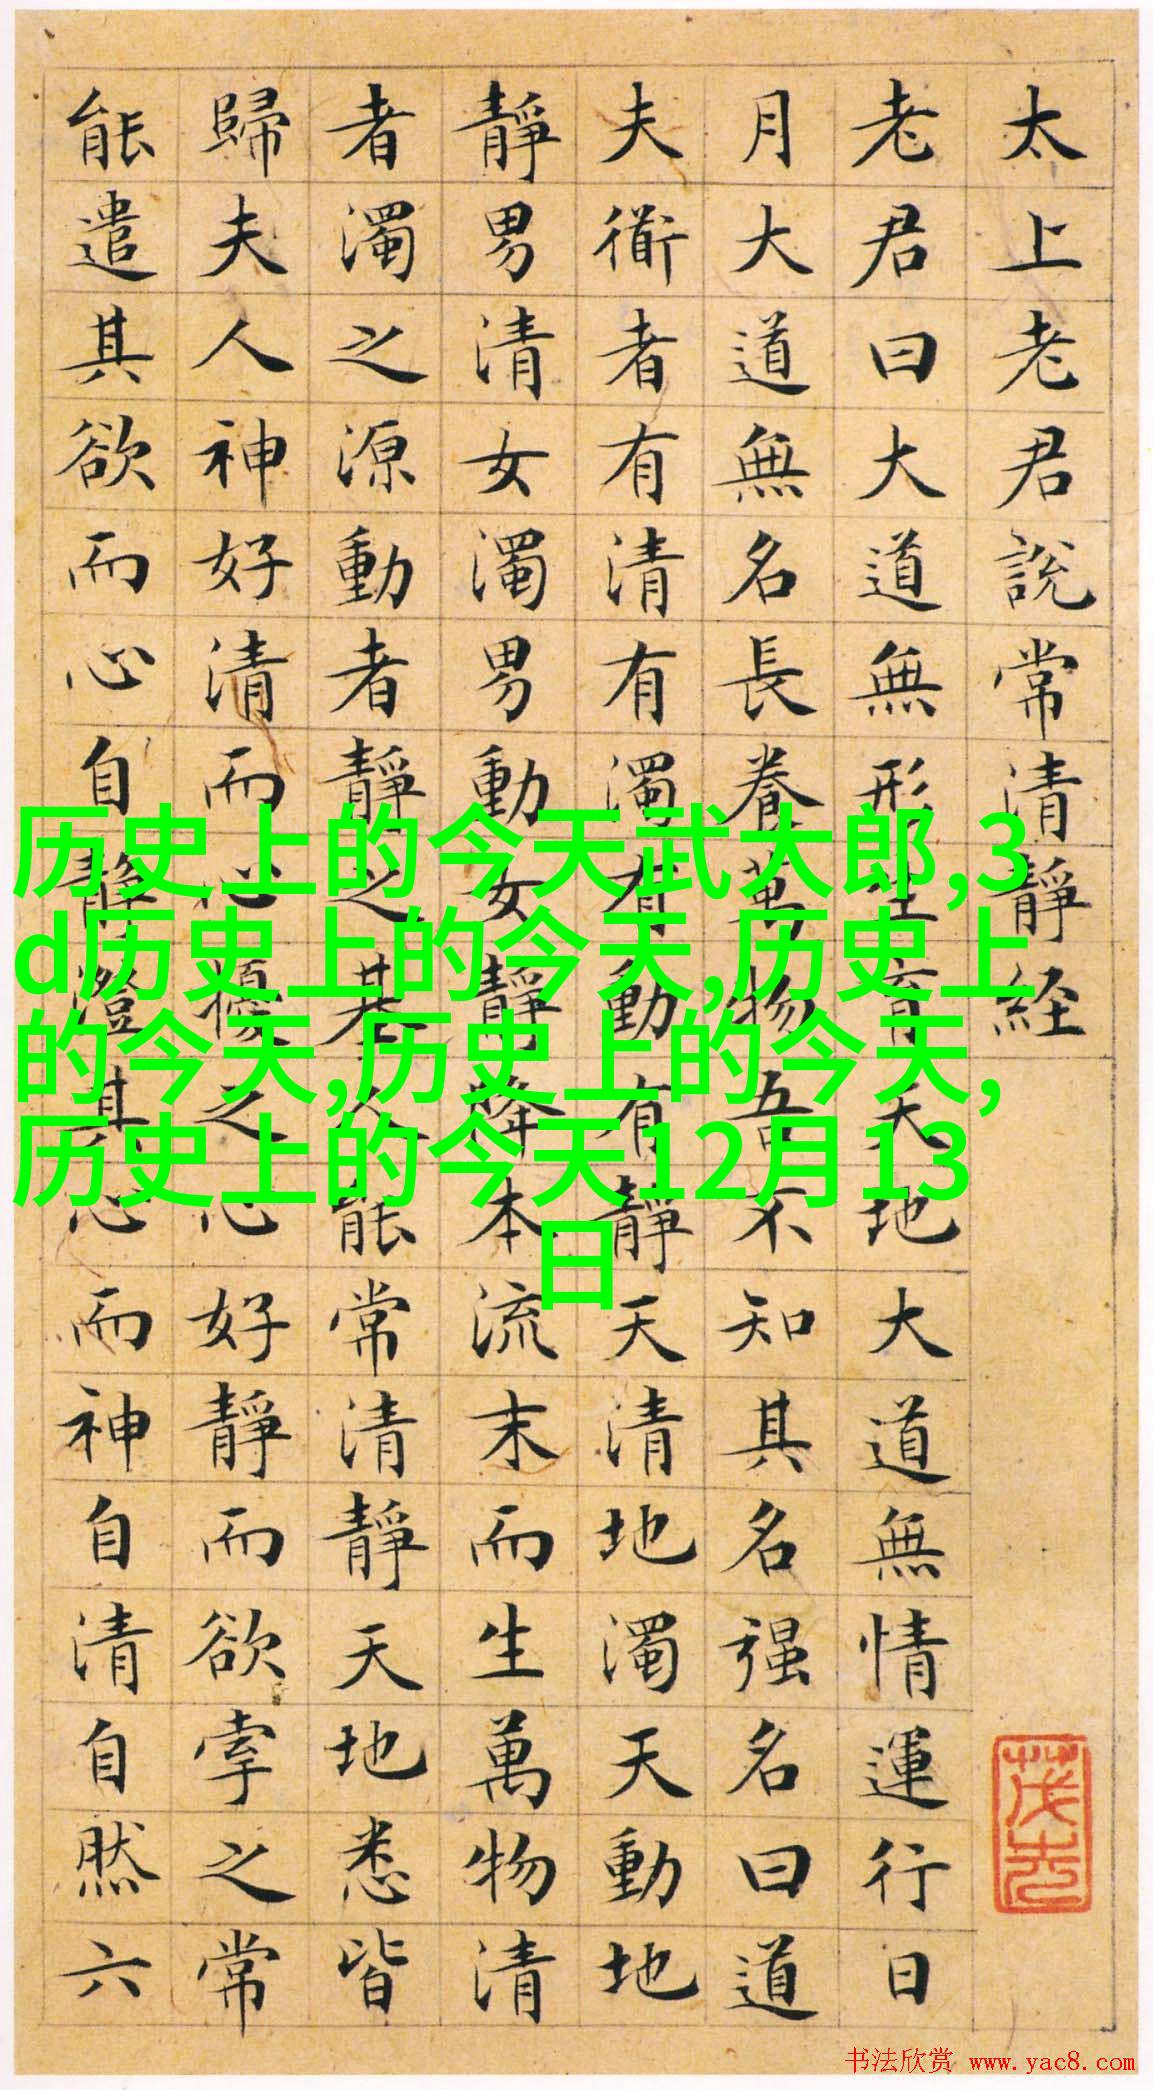 太上老君說常清靜経
老君曰大道無形生育天地大道無情運行日
月大道無名長養萬物吾不知其名强名曰道
夫衜者有清有濁有動有靜天清地濁天動地
靜男清女濁男動女靜降本流末而生萬物清
者濁之源動者靜之基人能常清靜天地悉皆
歸夫人神好清而心擾之心好靜而欲牽之常
能遣其欲而心自靜澄其心而神自清自然六
历史上的今天武大郎,3
d历史上的今天,历史上
的今天,历史上的今天,
历史上的今天12月13
日
书法欣赏 www.yac8.com